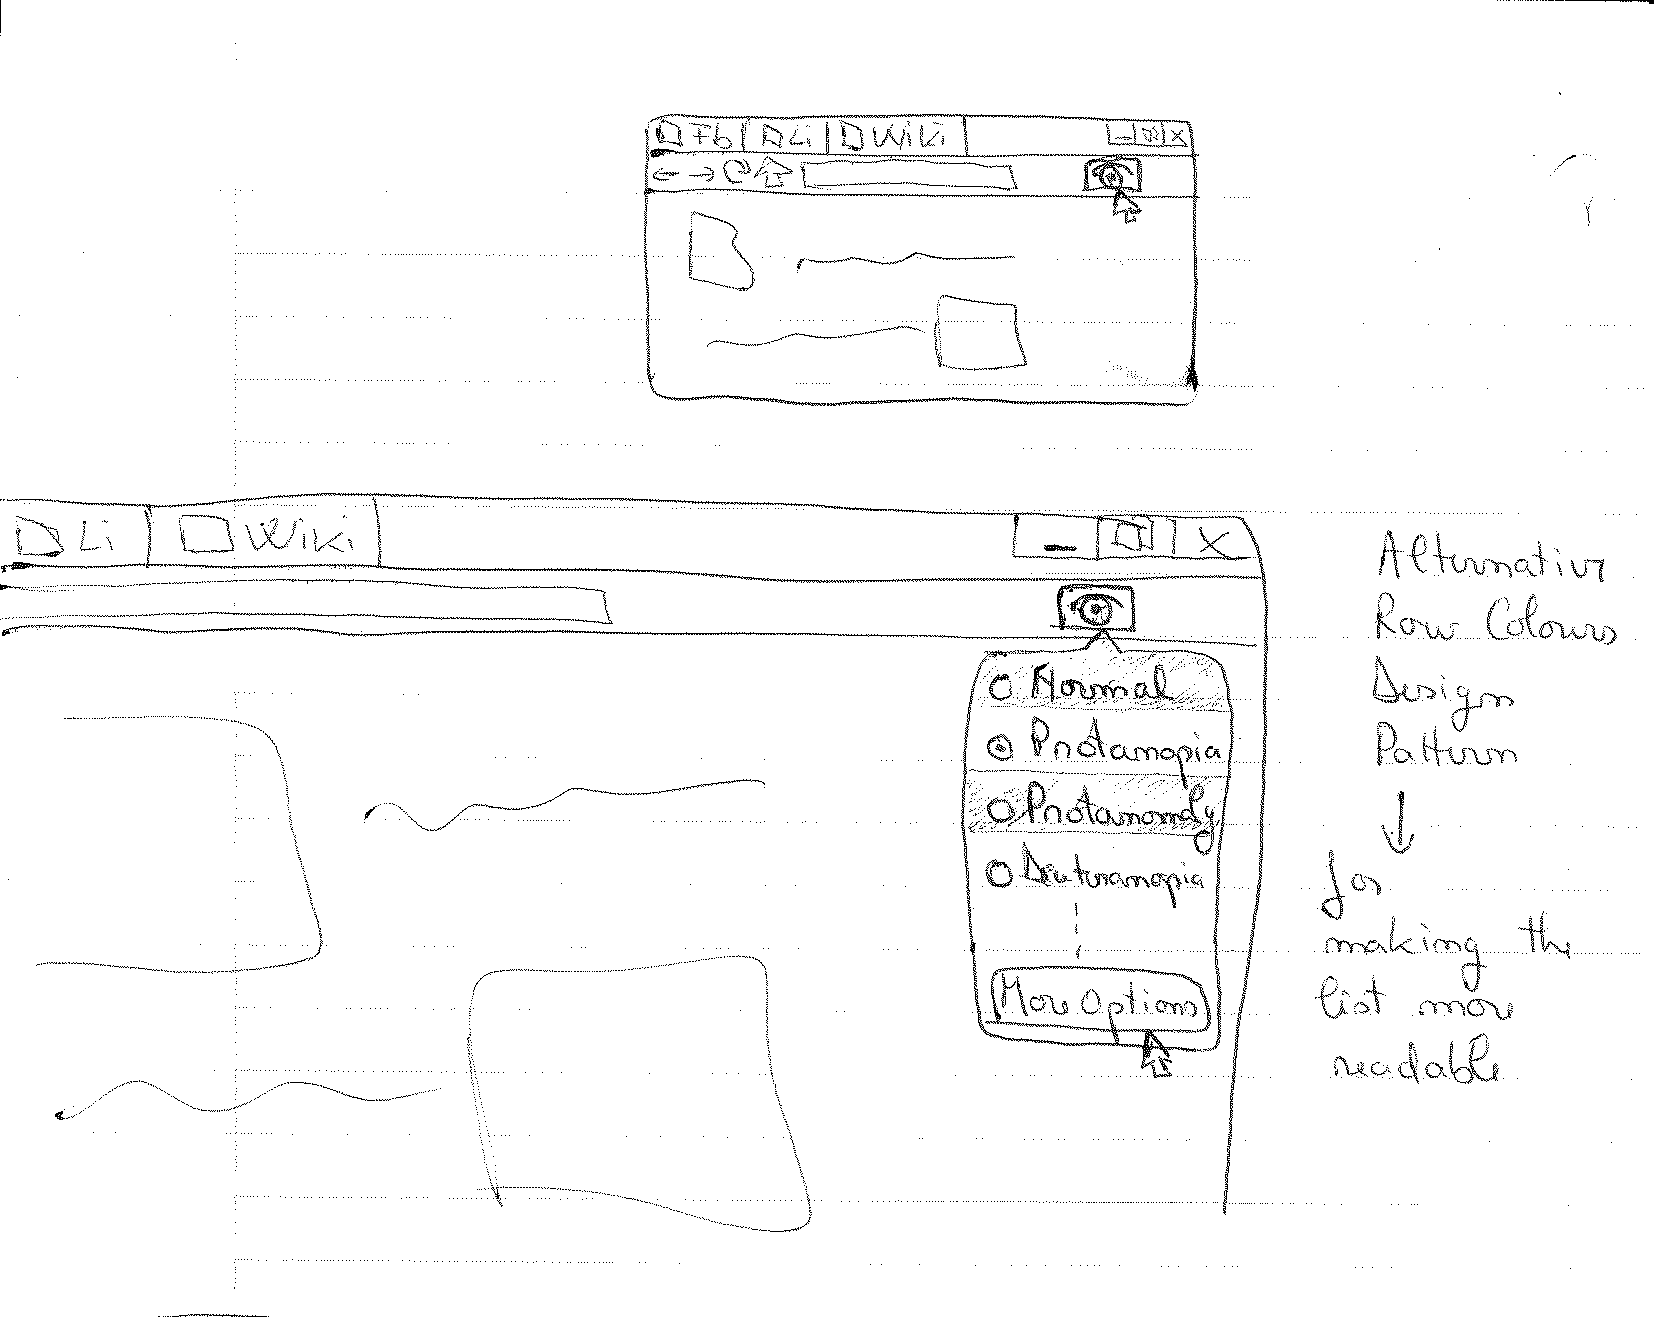 Fb Li Wiki
Li Wiki
Normal
Protanopia
Protanomaly
Deuteranopia
More Options
Alternative
Row Colours
Design
Pattern
for
making the
list more
readable